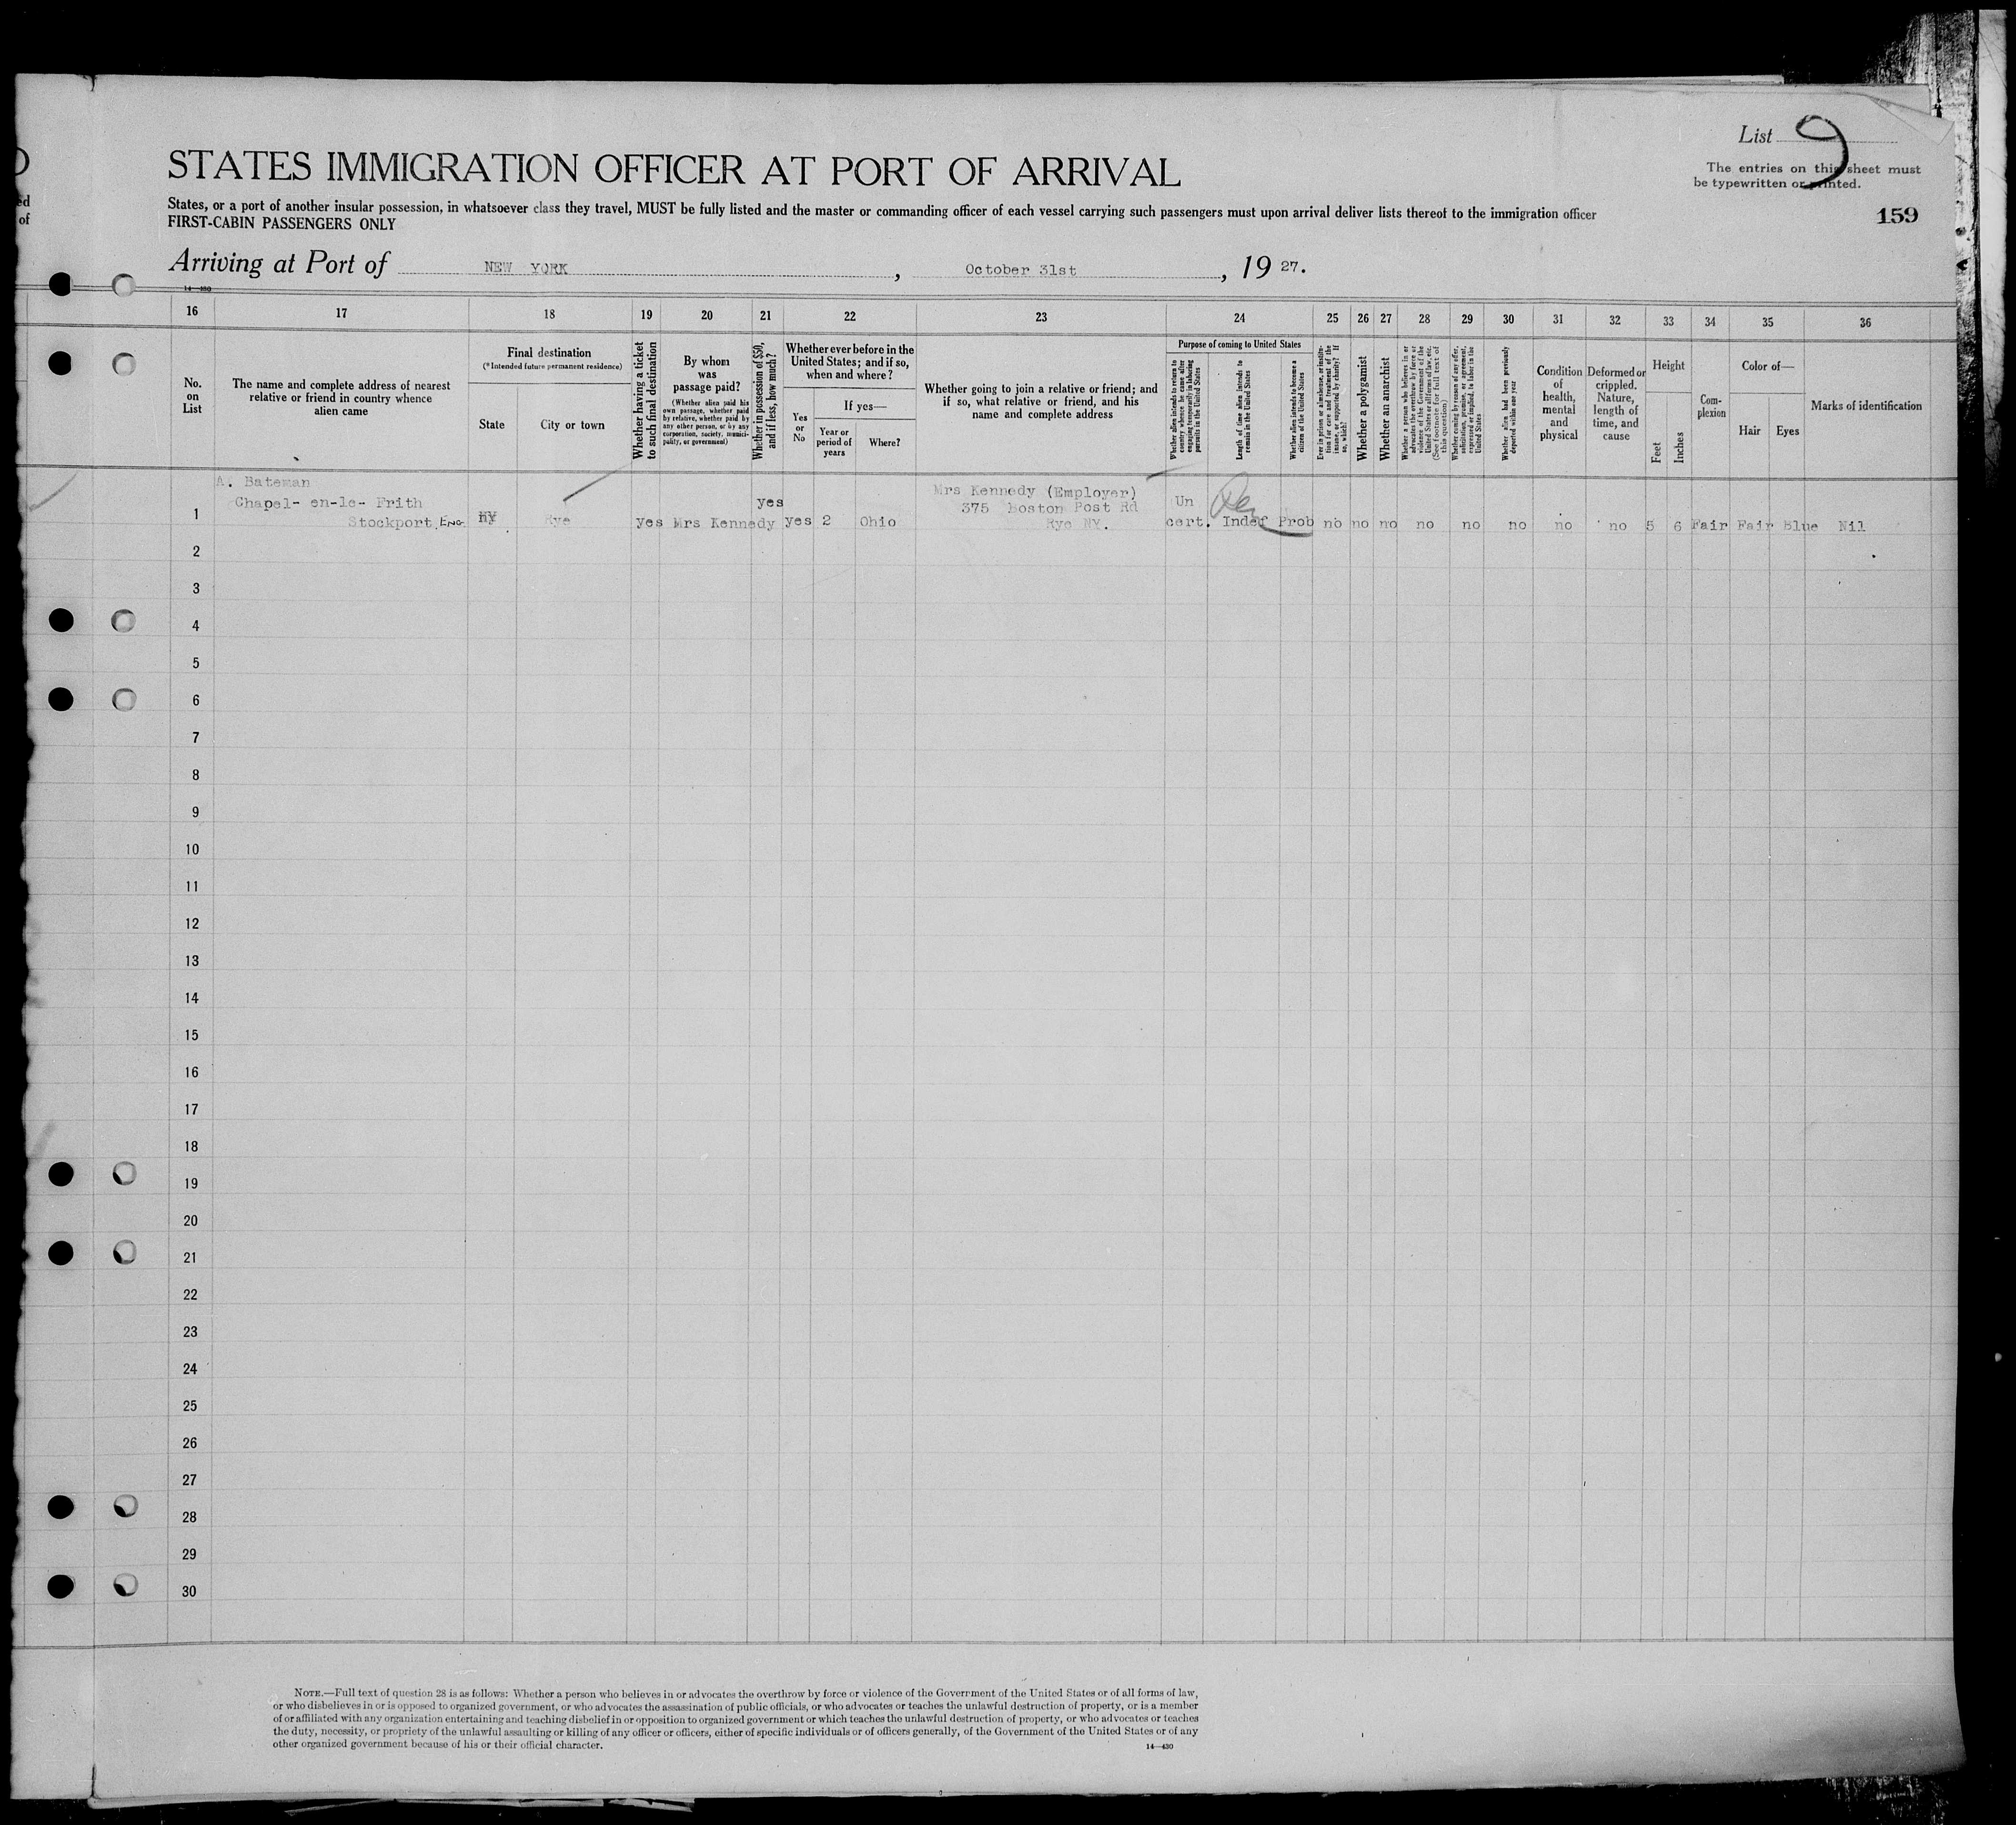 List 9
The entries on this sheet must
be typewritten or printed.
159
STATES IMMIGRATION OFFICER AT PORT OF ARRIVAL
States, or a port of another insular possession, in whatsoever class they travel, MUST be fully listed and the master or commanding officer of each vessel carrying such passengers must upon arrival deliver lists thereof to the immigration officer
FIRST-CABIN PASSENGERS ONLY
Arriving at Port of NEW YORK, October 31st, 19 27.
14—430
16 17 18 19 20 21 22 23 24 25 26 27 28 29 30 31 32 33 34 35 36
No.
on
List
The name and complete address of nearest
relative or friend in country whence
alien came
Final destination
(*Intended future permanent residence)
State
City or town
Whether having a ticket
to such final destination
By whom
was
passage paid?
(Whether alien paid his
own passage, whether paid
by relative, whether paid by
any other person, or by any
corporation, society, munici-
pality, or government)
Whether in possession of $50,
and if less, how much?
Whether ever before in the
United States; and if so,
when and where?
Yes
or
No
If yes—
Year or
period of
years
Where?
Whether going to join a relative or friend; and
if so, what relative or friend, and his
name and complete address
Purpose of coming to United States
Whether alien intends to return to
country whence he came after
engaging temporarily in laboring
pursuits in the United States
Length of time alien intends to
remain in the United States
Whether alien intends to become a
citizen of the United States
Ever in prison or almshouse, or institu-
tion for care and treatment of the
insane, or supported by charity? If
so, which?
Whether a polygamist
Whether an anarchist
Whether a person who believes in or
advocates the overthrow by force or
violence of the Government of the
United States or all forms of law, etc.
(See footnote for full text of
this question)
Whether coming by reason of any offer,
solicitation, promise, or agreement,
expressed or implied, to labor in the
United States
Whether alien had been previously
deported within one year
Condition
of
health,
mental
and
physical
Deformed or
crippled.
Nature,
length of
time, and
cause
Height
Feet
Inches
Com-
plexion
Color of—
Hair
Eyes
Marks of identification
A. Bateman
Chapel- en-le- Frith
Stockport, ENG
1 NY Rye yes Mrs Kennedy yes yes 2 Ohio
Mrs Kennedy (Employer)
375 Boston Post Rd
Rye NY.
Un
cert. Indef Prob no no no no no no no no 5 6 Fair Fair Blue Nil
2
3
4
5
6
7
8
9
10
11
12
13
14
15
16
17
18
19
20
21
22
23
24
25
26
27
28
29
30
NOTE.—Full text of question 28 is as follows: Whether a person who believes in or advocates the overthrow by force or violence of the Government of the United States or of all forms of law,
or who disbelieves in or is opposed to organized government, or who advocates the assassination of public officials, or who advocates or teaches the unlawful destruction of property, or is a member
of or affiliated with any organization entertaining and teaching disbelief in or opposition to organized government or which teaches the unlawful destruction of property, or who advocates or teaches
the duty, necessity, or propriety of the unlawful assaulting or killing of any officer or officers, either of specific individuals or of officers generally, of the Government of the United States or of any
other organized government because of his or their official character.
14—430